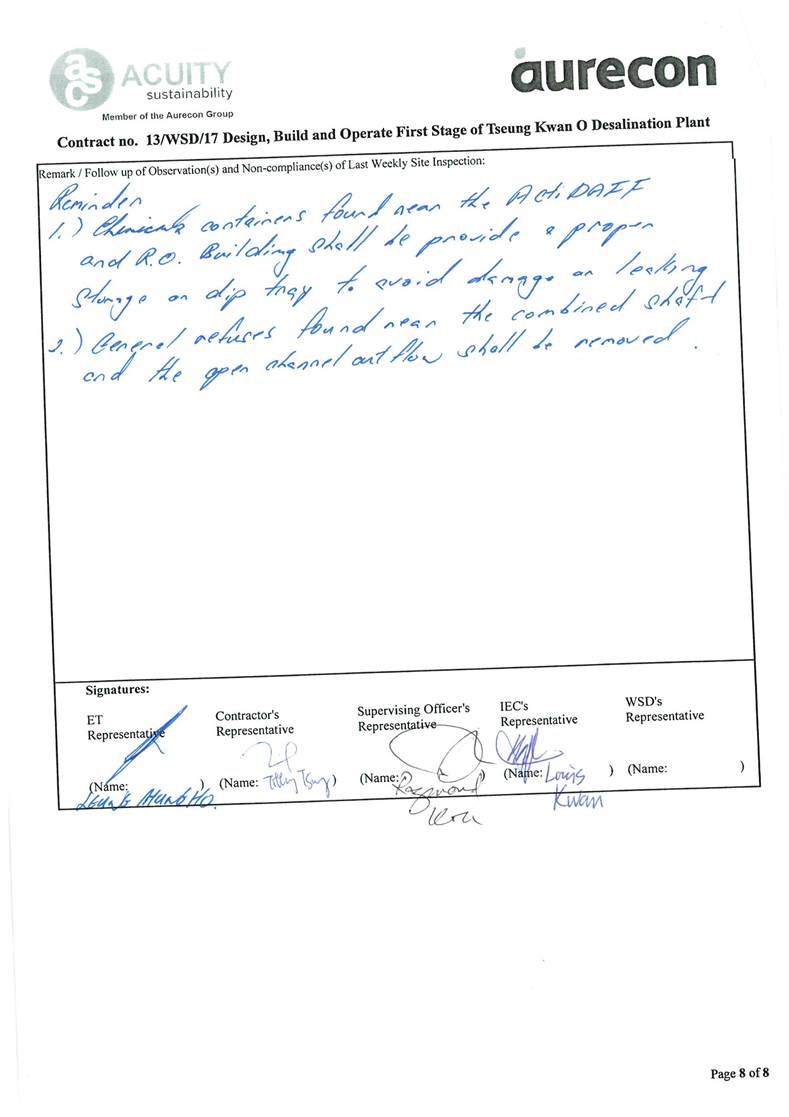 asc ACUITY
sustainability
Member of the Aurecon Group
aurecon
Contract no. 13/WSD/17 Design, Build and Operate First Stage of Tseung Kwan O Desalination Plant
Remark / Follow up of Observation(s) and Non-compliance(s) of Last Weekly Site Inspection:
Reminder
1.) Chemicals containers found near the ActiDAFF
and R.O. Building shall be provide a proper
storage or dip tray to avoid damage or leaking
2.) General refuses found near the combined shaft
and the open channel outflow shall be removed.
Signatures:
ET
Representative
Contractor's
Representative
Supervising Officer's
Representative
IEC's
Representative
WSD's
Representative
(Name: )
(Name: )
(Name: Raymond
(Name: Louis )
Kwan
(Name: )
Page 8 of 8